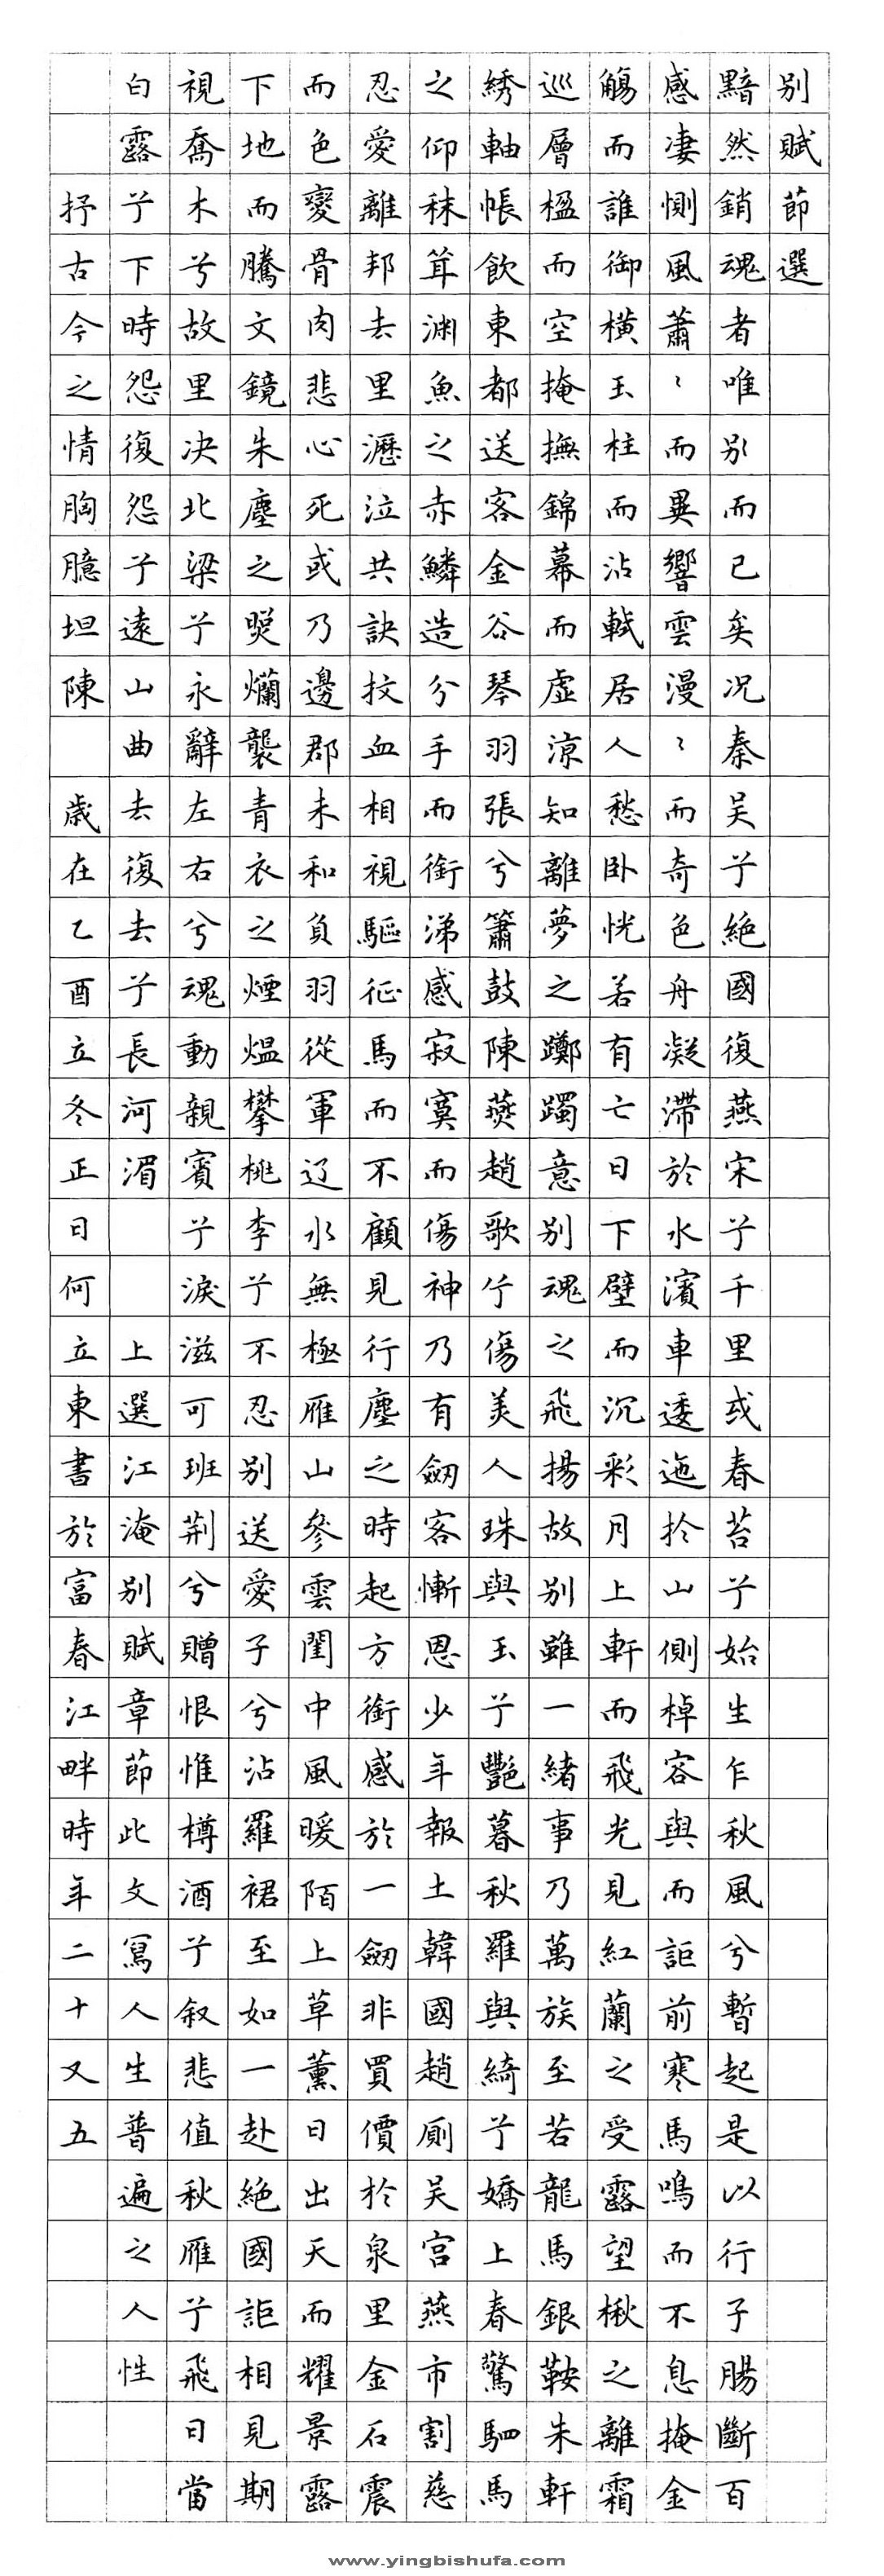 别賦節選
黯然銷魂者唯别而已矣况秦吴兮絶國復燕宋兮千里或春苔兮始生乍秋風兮暫起是以行子腸斷百
感凄惻風蕭〻而異響雲漫〻而奇色舟凝滯於水濱車逶迤於山側棹容與而詎前寒馬鳴而不息掩金
觴而誰御横玉柱而沾軾居人愁卧怳若有亡日下壁而沉彩月上軒而飛光見紅蘭之受露望楸之離霜
巡層楹而空掩撫錦幕而虚涼知離夢之躑躅意别魂之飛揚故别雖一緒事乃萬族至若龍馬銀鞍朱軒
綉軸帳飲東都送客金谷琴羽張兮簫鼓陳燕趙歌兮傷美人珠與玉兮艷暮秋羅與綺兮嬌上春驚駟馬
之仰秣聳淵魚之赤鱗造分手而銜涕感寂寞而傷神乃有劒客慚恩少年報士韓國趙厠吴宫燕市割慈
忍愛離邦去里瀝泣共訣抆血相視驅征馬而不顧見行塵之時起方銜感於一劒非買價於泉里金石震
而色變骨肉悲心死或乃邊郡未和負羽從軍辽水無極雁山參雲閨中風暖陌上草薰日出天而耀景露
下地而騰文鏡朱塵之照爛襲青衣之煙煴攀桃李兮不忍别送愛子兮沾羅裙至如一赴絶國詎相見期
視喬木兮故里决北梁兮永辭左右兮魂動親賓兮淚滋可班荆兮贈恨惟樽酒兮叙悲值秋雁兮飛日當
白露兮下時怨復怨兮遠山曲去復去兮長河湄 上選江淹别賦章節此文寫人生普遍之人性
抒古今之情胸臆坦陳 歲在乙酉立冬正日何立東書於富春江畔時年二十又五
www.yingbishufa.com